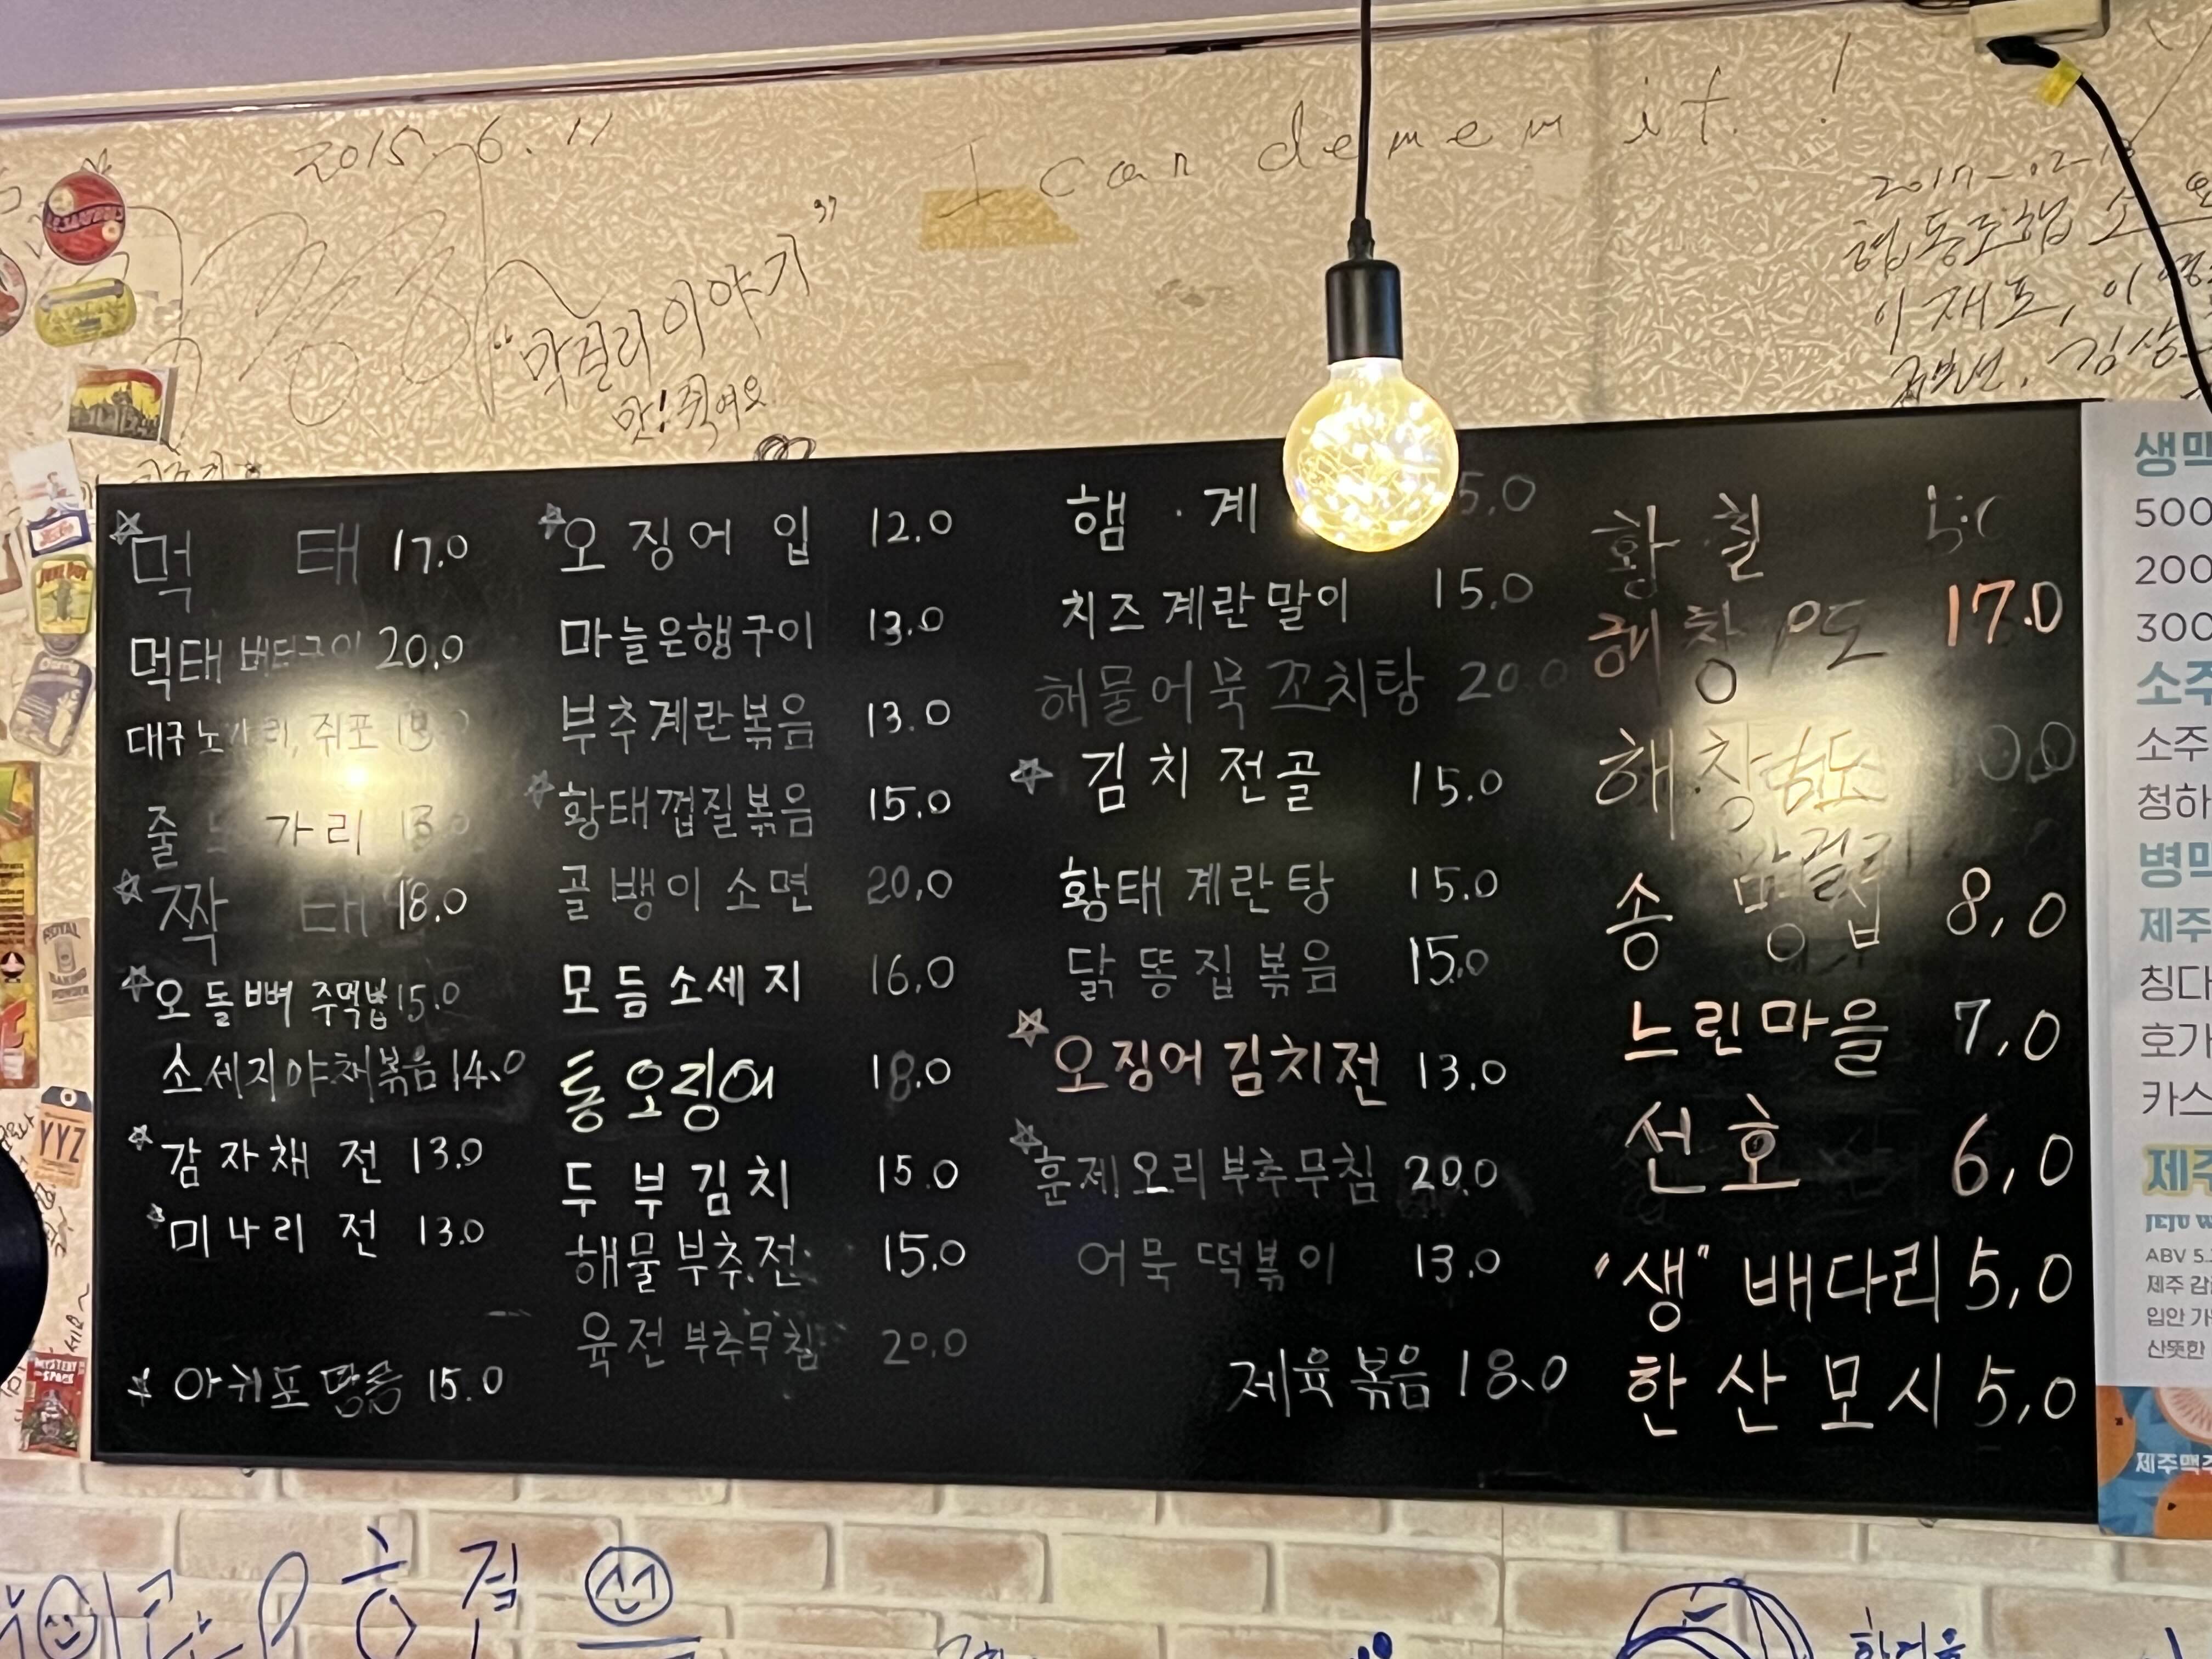 2015. 6. 11
I can demem it.!
"막걸리이야기"
맛! 쥑여요
2017-02-18
협동조합 소
이재포, 이영
김상
☆먹 태 17.0
먹태 버터구이 20.0
대구노가리, 쥐포 13.0
줄 노가리 13.0
☆짝 태 18.0
☆오돌뼈 주먹밥 15.0
소세지야채볶음 14.0
☆감자채 전 13.0
☆미나리 전 13.0
☆아쥐포 땅콩 15.0
☆오징어 입 12.0
마늘은행구이 13.0
부추계란볶음 13.0
☆황태껍질볶음 15.0
골뱅이 소면 20,0
모듬소세지 16.0
통오징어 18.0
두부김치 15.0
해물부추전 15.0
육전부추무침 20.0
햄 · 계 5.0
치즈계란말이 15.0
해물어묵꼬치탕 20.0
☆김치전골 15.0
황태계란탕 15.0
닭똥집볶음 15.0
☆오징어김치전 13.0
☆훈제오리부추무침 20.0
어묵떡볶이 13.0
제육볶음 18.0
황칠
해창 12도 17.0
해창 9도
막걸리
송명섭 8,0
느린마을 7,0
선호 6,0
"생" 배다리 5,0
한산모시 5,0
생맥
500
200
300
소주
소주
청하
병맥
제주
칭다
호가
카스
제주
JEJU W
ABV 5.
제주 감
입안 가
산뜻한
제주맥주
YYZ
ROYAL
BAKING
POWDER